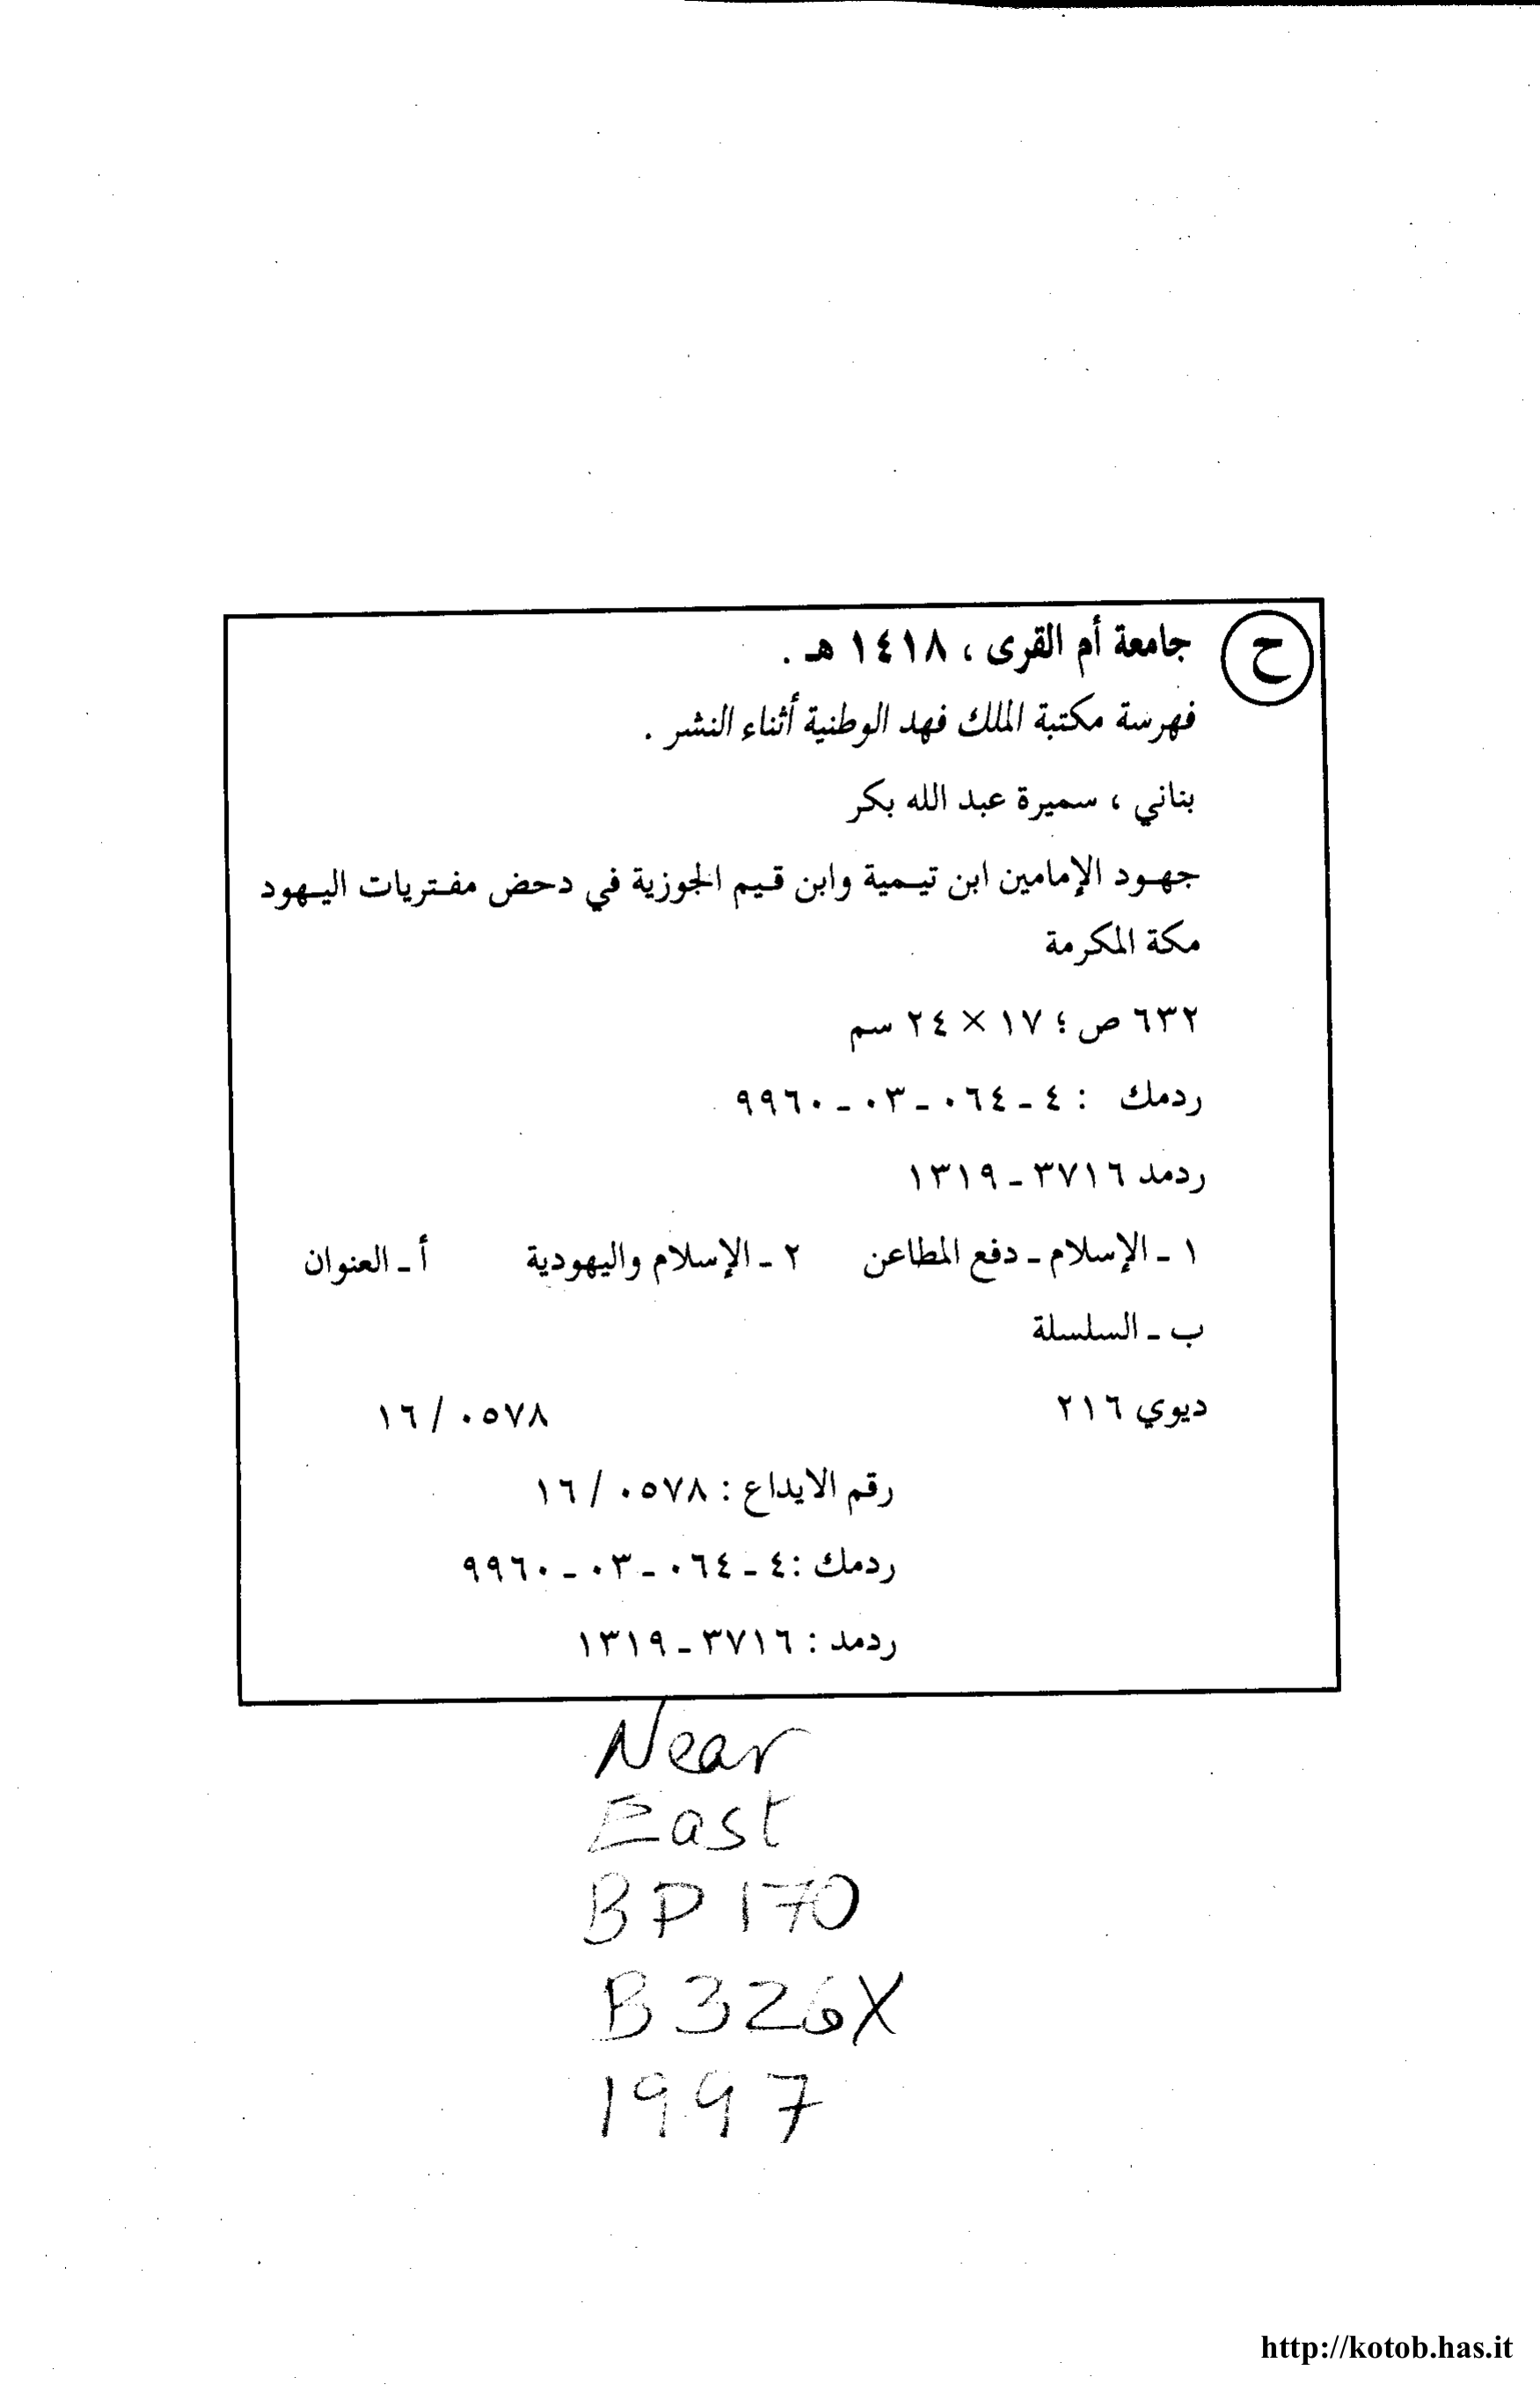 ح جامعة أم القرى ، ١٤١٨ هـ .
فهرسة مكتبة الملك فهد الوطنية أثناء النشر .
بناني ، سميرة عبد الله بكر
جهود الإمامين ابن تيمية وابن قيم الجوزية في دحض مفتريات اليهود
مكة المكرمة
٦٣٢ ص ؛ ١٧ × ٢٤ سم
ردمك : ٤ - ٠٦٤ - ٠٣ - ٩٩٦٠
ردمد ٣٧١٦ - ١٣١٩
١ - الإسلام - دفع المطاعن ٢ - الإسلام واليهودية أ - العنوان
ب - السلسلة
ديوي ٢١٦ ٠٥٧٨ / ١٦
رقم الايداع : ٠٥٧٨ / ١٦
ردمك : ٤ - ٠٦٤ - ٠٣ - ٩٩٦٠
ردمد : ٣٧١٦ - ١٣١٩
Near
East
BP170
B326X
1997
http://kotob.has.it